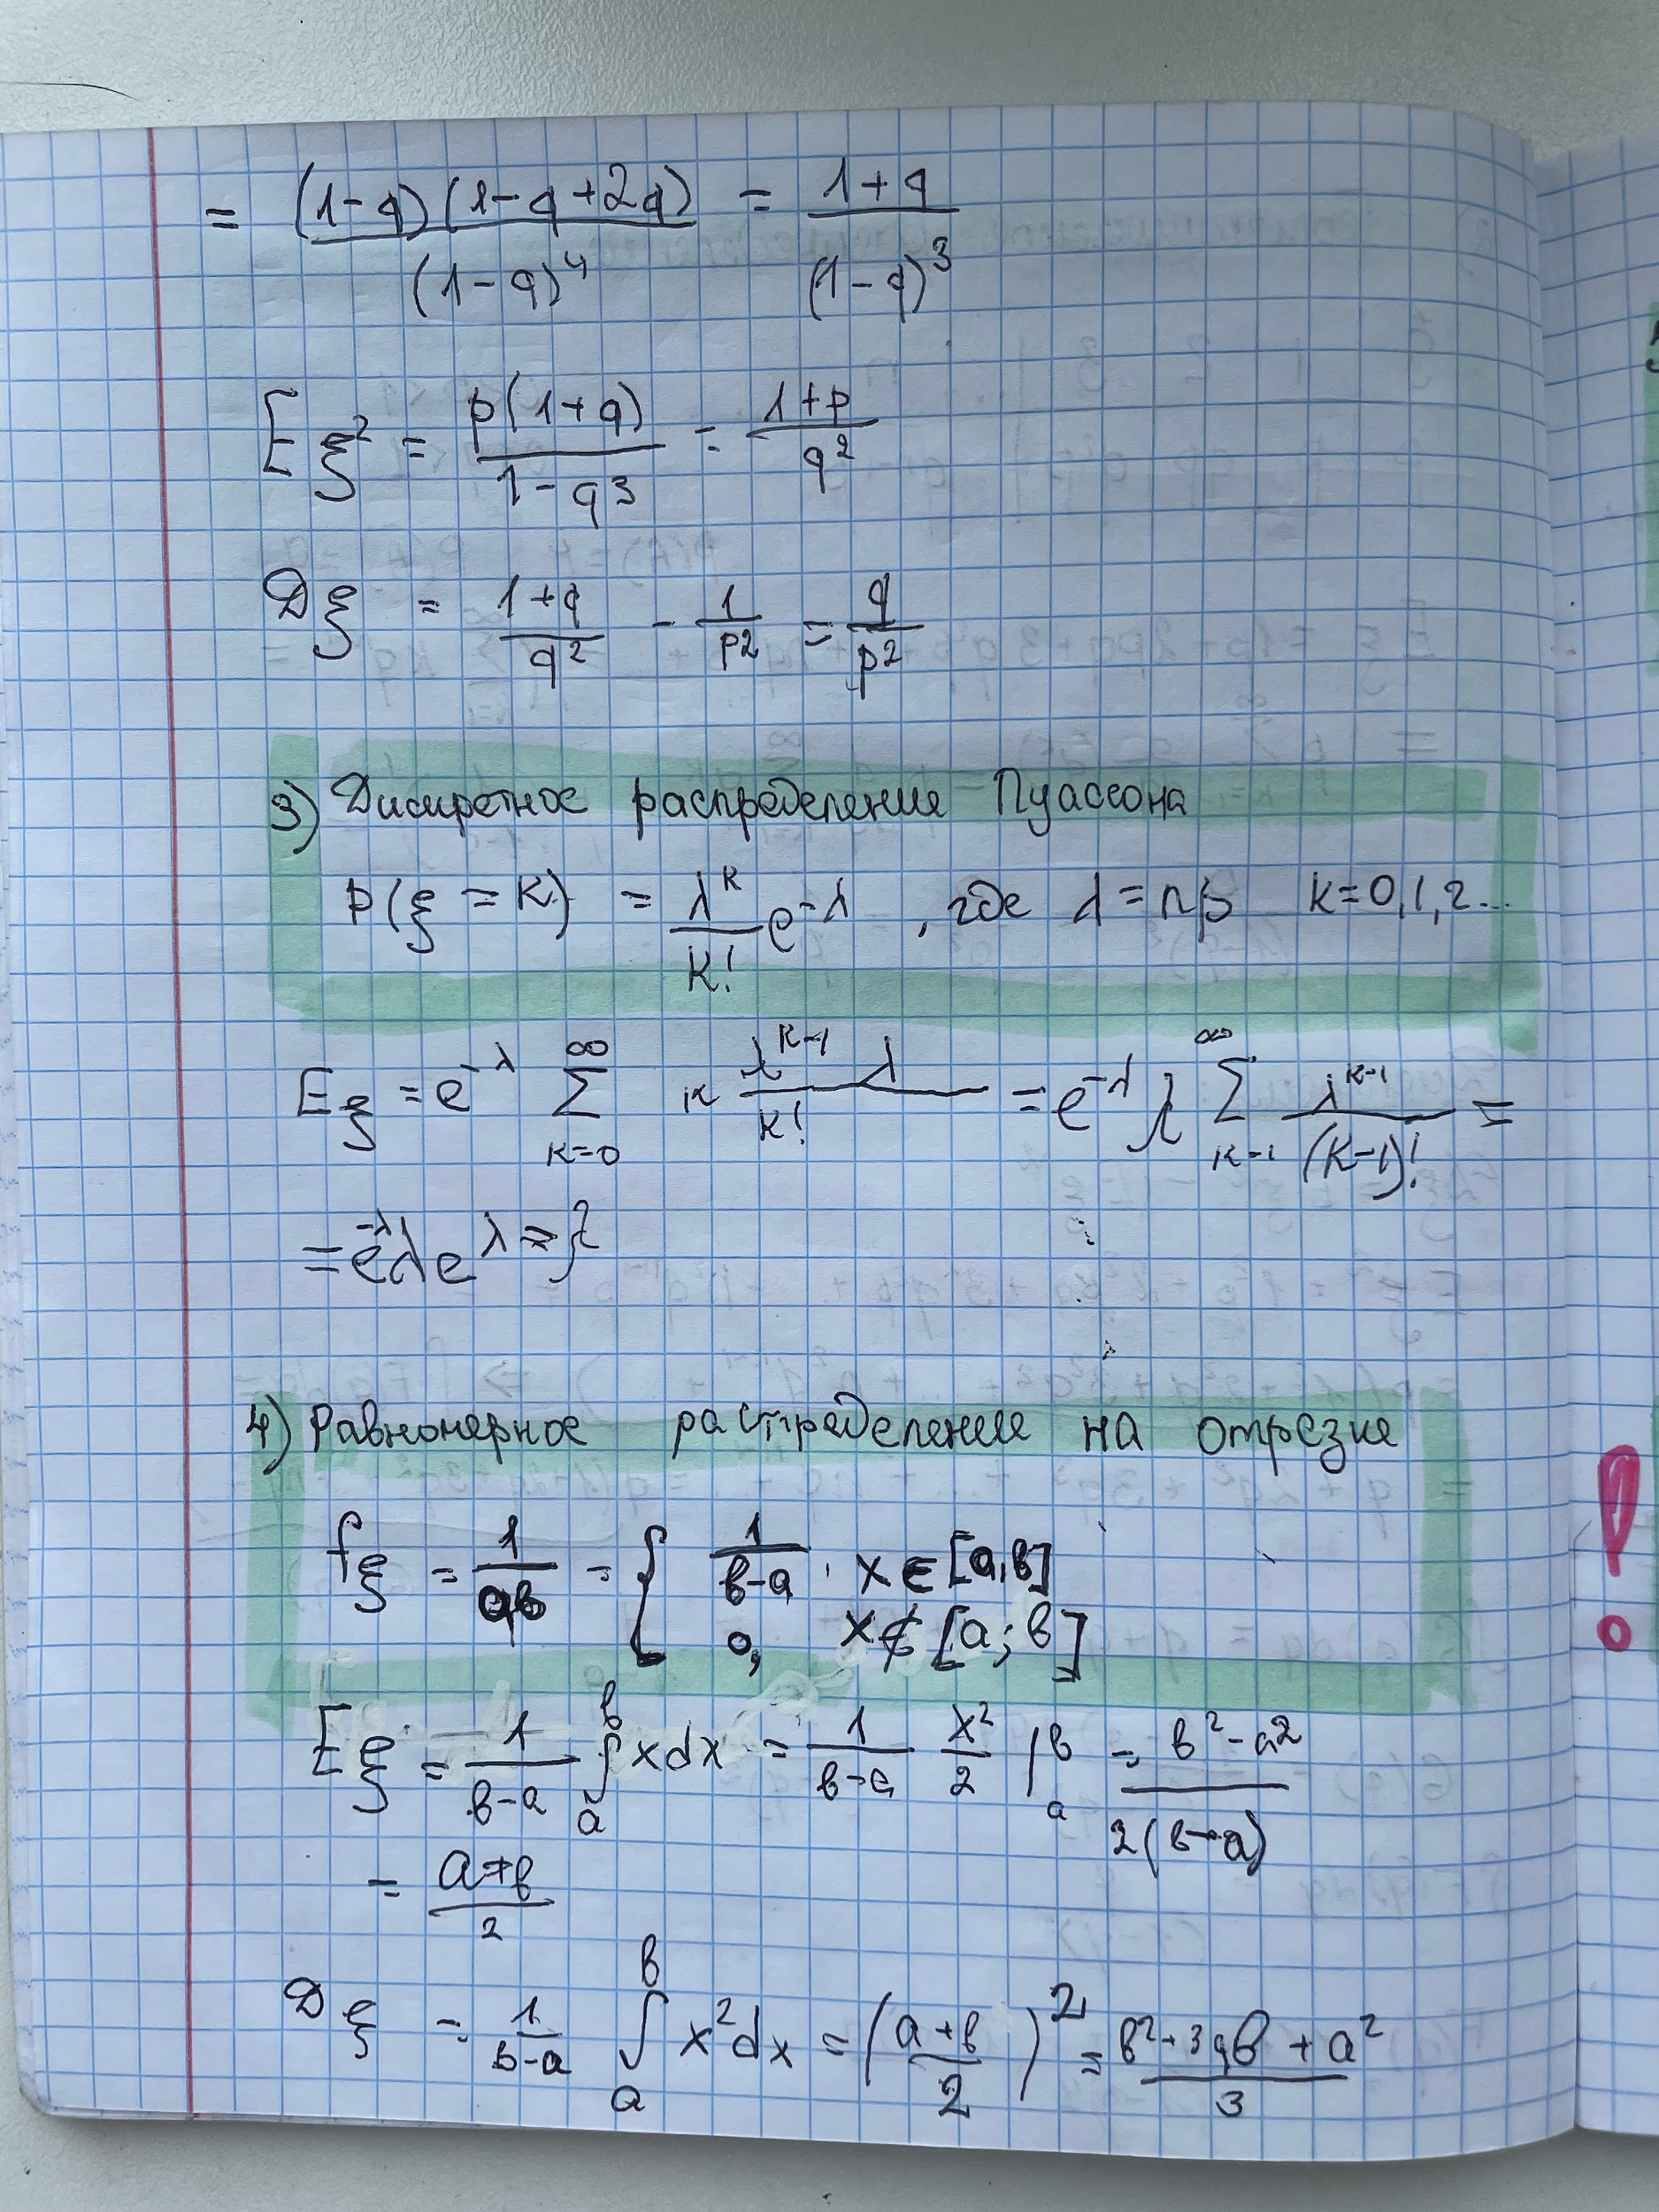 = (1-q)(1-q+2q) / (1-q)^4 = 1+q / (1-q)^3
Eξ² = p(1+q) / 1-q3 = 1+p / q²
Dξ = 1+q / q² - 1 / p² = q / p²
3) Дискретное распределение Пуассона
P(ξ = K) = λ^K / K! e^-λ, где λ = np K=0,1,2...
Eξ = e^-λ ∑_{K=0}^{∞} K λ^{K-1} λ / K! = e^-λ λ ∑_{K-1}^{∞} λ^{K-1} / (K-1)! =
= e^-λ λ e^λ =
4) Равномерное распределение на отрезке
fξ = 1 / ab = { 1 / b-a, x∈[a,b]
0, x∉[a;b]
Eξ = 1 / b-a ∫_a^b x dx = 1 / b-a x² / 2 |_a^b = b²-a² / 2(b-a)
= a+b / 2
Dξ = 1 / b-a ∫_a^b x² dx = (a+b / 2)² = b²+3ab+a² / 3
!